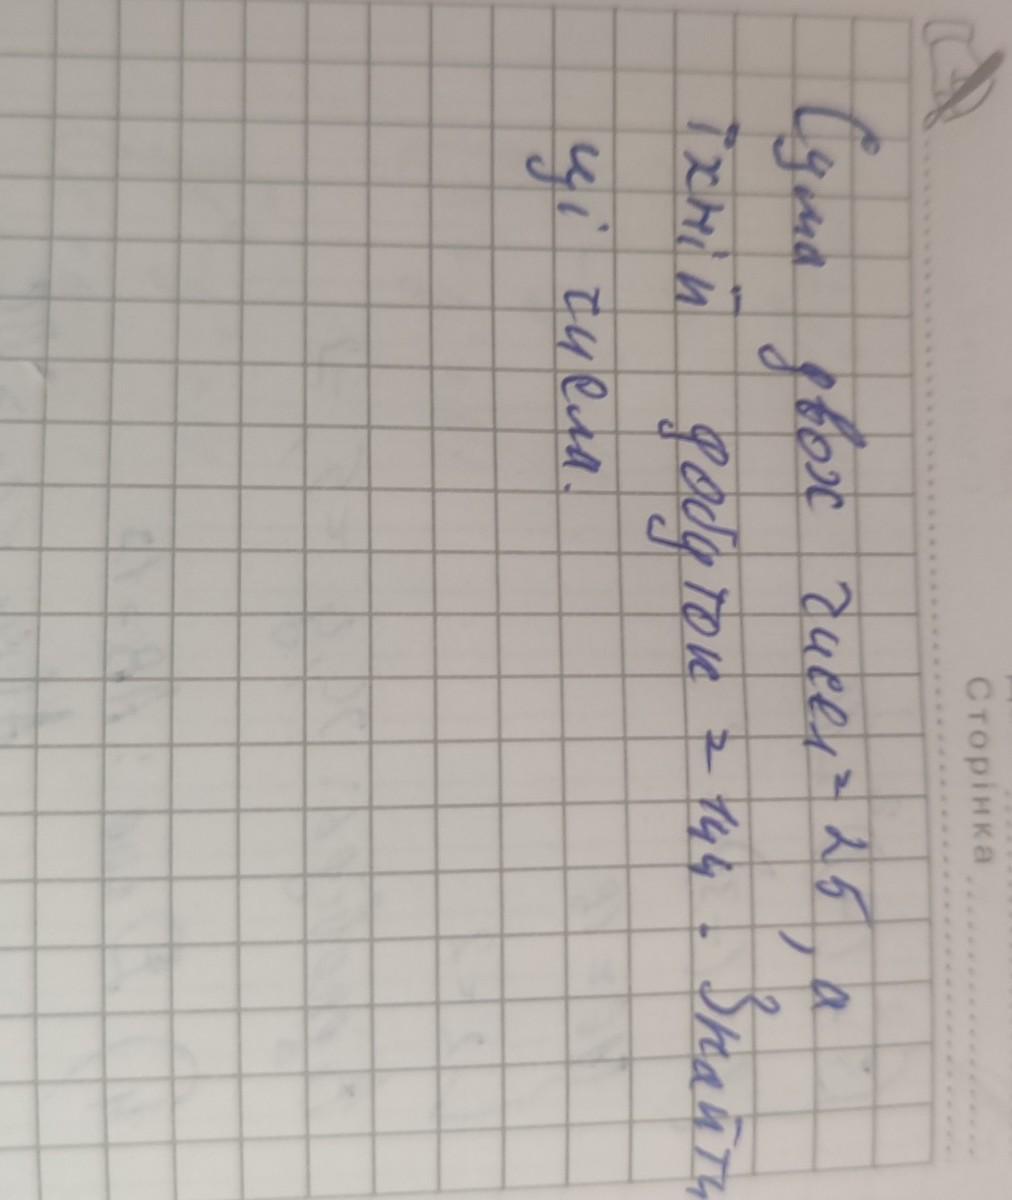 Сторінка
Сума двох чисел = 25, а
їхній добуток = 144. Знайти
ці числа.